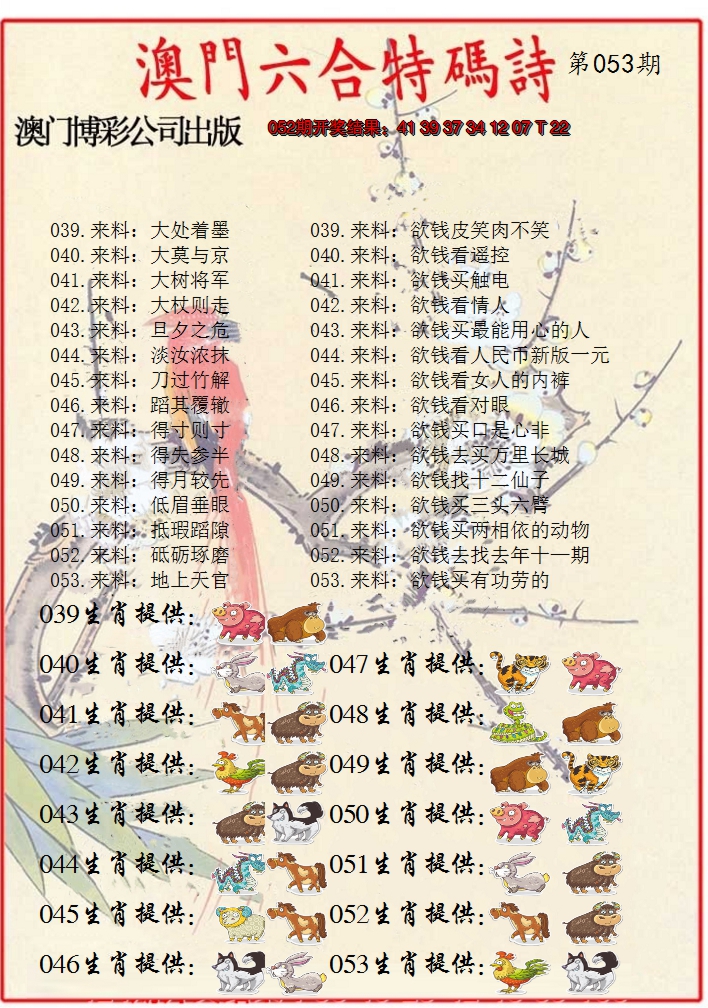 澳門六合特碼詩 第053期
澳门博彩公司出版 052期开奖结果：41 39 37 34 12 07 T 22
039.来料：大处着墨 039.来料：欲钱皮笑肉不笑
040.来料：大莫与京 040.来料：欲钱看遥控
041.来料：大树将军 041.来料：欲钱买触电
042.来料：大杖则走 042.来料：欲钱看情人
043.来料：旦夕之危 043.来料：欲钱买最能用心的人
044.来料：淡汝浓抹 044.来料：欲钱看人民币新版一元
045.来料：刀过竹解 045.来料：欲钱看女人的内裤
046.来料：蹈其覆辙 046.来料：欲钱看对眼
047.来料：得寸则寸 047.来料：欲钱买口是心非
048.来料：得失参半 048.来料：欲钱去买万里长城
049.来料：得月较先 049.来料：欲钱找十二仙子
050.来料：低眉垂眼 050.来料：欲钱买三头六臂
051.来料：抵瑕蹈隙 051.来料：欲钱买两相依的动物
052.来料：砥砺琢磨 052.来料：欲钱去找去年十一期
053.来料：地上天官 053.来料：欲钱买有功劳的
039生肖提供：
040生肖提供： 047生肖提供：
041生肖提供： 048生肖提供：
042生肖提供： 049生肖提供：
043生肖提供： 050生肖提供：
044生肖提供： 051生肖提供：
045生肖提供： 052生肖提供：
046生肖提供： 053生肖提供：